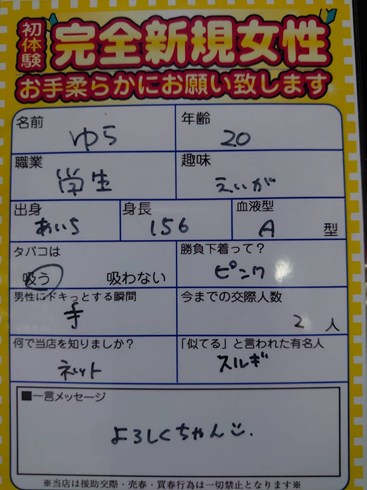 初体験 完全新規女性
お手柔らかにお願い致します
名前 ゆら 年齢 20
職業 学生 趣味 えいが
出身 あいち 身長 156 血液型 A 型
タバコは 吸う 吸わない 勝負下着って? ピンク
男性にドキっとする瞬間 手 今までの交際人数 2 人
何で当店を知りましたか? ネット 「似てる」と言われた有名人 スルギ
■一言メッセージ
よろしくちゃん
※当店は援助交際・売春・買春行為は一切禁止となります※